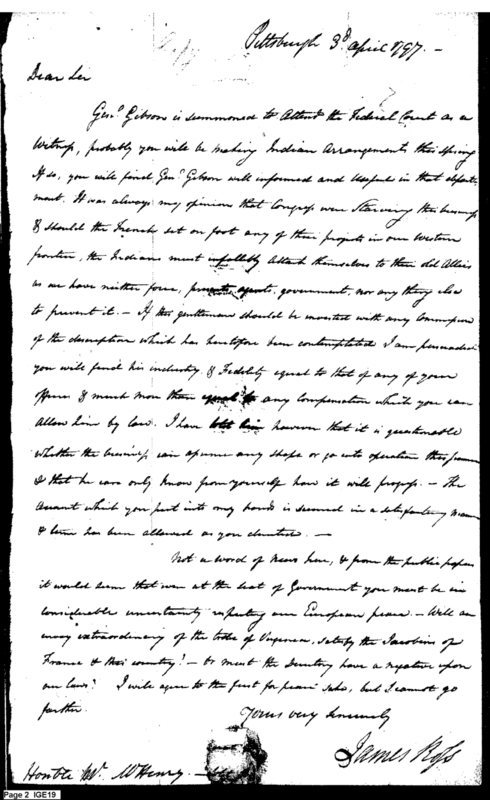 Pittsburgh 3d april 1797. -
Dear Sir
Genl. Gibson is summoned to Attend the Federal Court as a
Witness, probably you will be making Indian Arrangements this spring
If so, you will find Genl. Gibson well informed and Usefull in that depart
ment. It was always my opinion that Congress were Starving this business
& should the French set on foot any of their projects in our Western
frontier, the Indians must infallibly Attach themselves to their old Allies
as we have neither force, government, nor any thing else
to prevent it. - If this gentleman should be invested with any Commission
of the description which has heretofore been contemplated I am persuaded
you will find his industry & Fidelity equal to that of any of your
officers & much more than equal to any Compensation which you can
Allow him by law. I have told him however that it is questionable
whether the business can assume any shape or go into operation this
& that he can only know from yourself how it will progress. - The
Amount which you put into my hands is secured in a satisfactory manner
& time has been allowed as you directed. -
Not a word of News here, & from the public papers
it would seem that even at the Seat of Government you must be in
considerable uncertainty respecting our European peace. - Will an
envoy extraordinary of the tribe of Virginia, satisfy the Jacobins of
France & this country? - or must the Directory have a negative upon
our laws? I will agree to the first for peace sake, but I cannot go
farther.
Yours very sincerely
James Ross
Honble Mr. McHenry
Page 2 IGE19